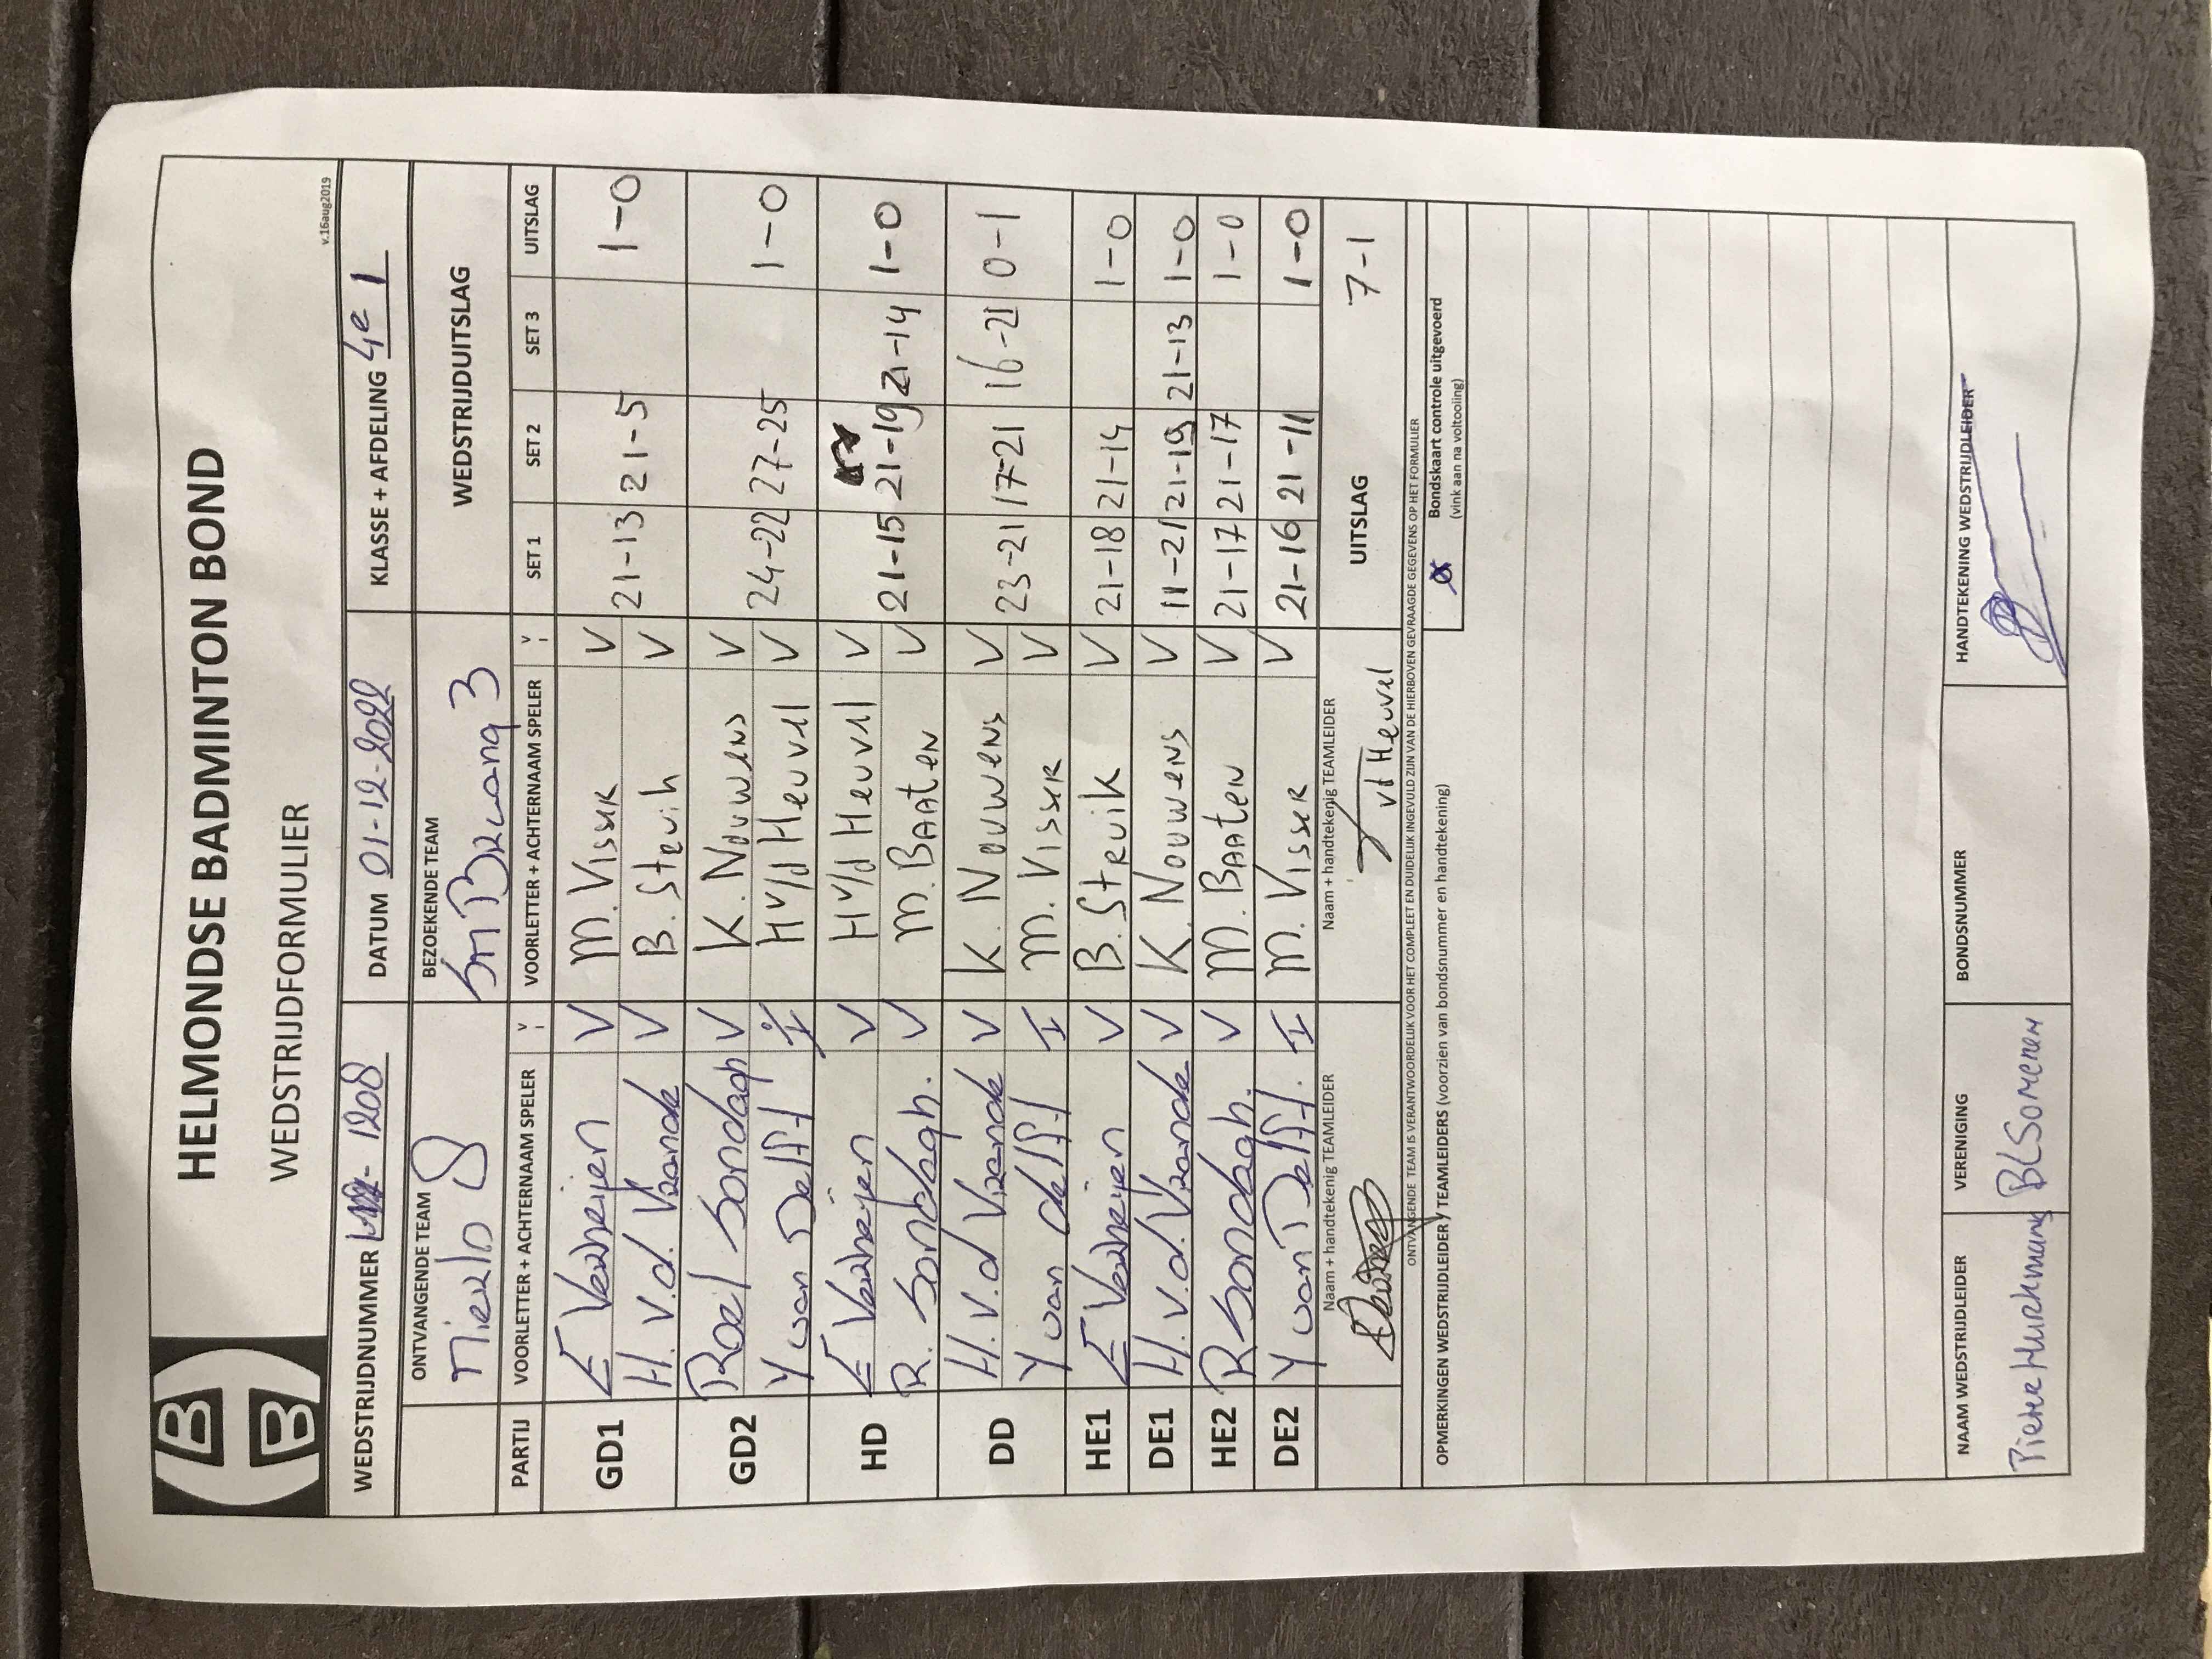 HELMONDSE BADMINTON BOND
WEDSTRIJDFORMULIER
v.16aug2019
WEDSTRIJDNUMMER 1208 DATUM 01-12-2022 KLASSE + AFDELING 4e 1
ONTVANGENDE TEAM BEZOEKENDE TEAM WEDSTRIJDUITSLAG
Mierlo 8 3
PARTIJ VOORLETTER + ACHTERNAAM SPELER V VOORLETTER + ACHTERNAAM SPELER V SET 1 SET 2 SET 3 UITSLAG
GD1 E Verheijen V M. Visser V 21-13 21-5 1-0
H. v.d. Vrande V B. Struik V
GD2 Roel Sondagh V K. Nouwens V 24-22 27-25 1-0
Y van Delft I H v/d Heuvel V
HD E Verheijen V H v/d Heuvel V 21-15 21-19 21-14 1-0
R. Sondagh. V M. BAAten V
DD H. v.d Vrande V K. Nouwens V 23-21 17-21 16-21 0-1
Y van delft I M. Visser V
HE1 E Verheijen V B. Struik V 21-18 21-14 1-0
DE1 H. v.d. Vrande V K. Nouwens V 11-21 21-19 21-13 1-0
HE2 R Sondagh. V M. BAAten V 21-17 21-17 1-0
DE2 Y van Delft. I M. Visser V 21-16 21-11 1-0
Naam + handtekenig TEAMLEIDER Naam + handtekenig TEAMLEIDER UITSLAG 7-1
vd Heuvel
ONTVANGENDE TEAM IS VERANTWOORDELIJK VOOR HET COMPLEET EN DUIDELIJK INGEVULD ZIJN VAN DE HIERBOVEN GEVRAAGDE GEGEVENS OP HET FORMULIER
OPMERKINGEN WEDSTRIJDLEIDER / TEAMLEIDERS (voorzien van bondsnummer en handtekening) Bondskaart controle uitgevoerd
(vink aan na voltooiing)
NAAM WEDSTRIJDLEIDER VERENIGING BONDSNUMMER HANDTEKENING WEDSTRIJDLEIDER
BCSomeren